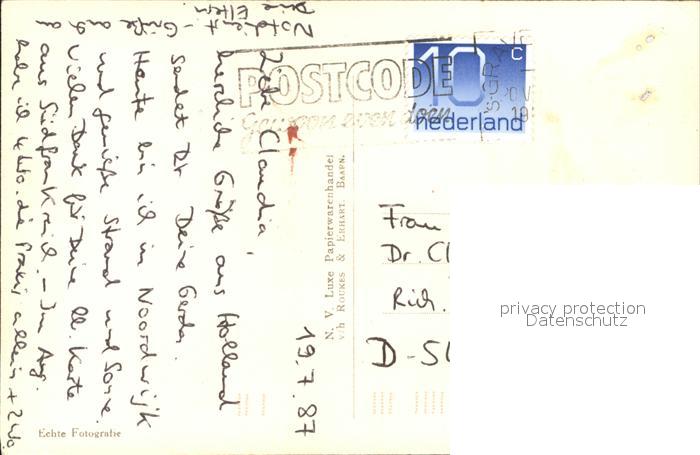 19.7.87
Liebe Claudia,
herzliche Grüße aus Holland
sendet Dir Deine Gerda.
Heute bin ich in Noordwijk
und genieße Strand und Sonne.
Vielen Dank für Deine lb. Karte
aus Südfrankreich. - Im Aug.
habe ich 4 Wo. die Praxis allein + 2 Wo.
Notdienst - Grüße auch
Deine Eltern
POSTCODE
Gewoon even doen
10 c
nederland
'S-GRAV
N. V. Luxe Papierwarenhandel
v/h Roukes & Erhart, Baarn.
Frau
Dr. Cl
Rich.
D-51
privacy protection
Datenschutz
Echte Fotografie